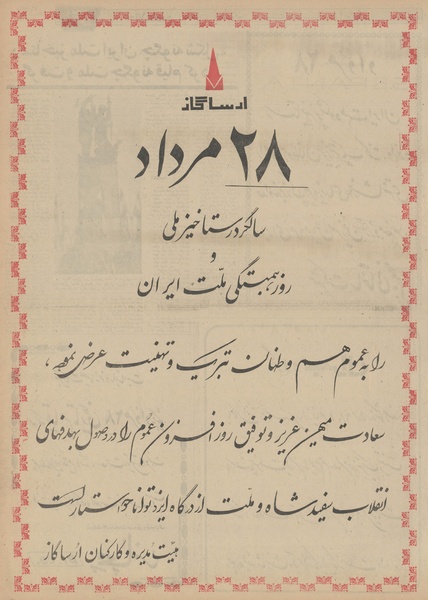 ارساگاز
۲۸ مرداد
سالگرد رستاخیز ملی
و
روز همبستگی ملّت ایران
را به عموم هم وطنان تبریک و تهنیت عرض نموده ،
سعادت میهن عزیز و توفیق روز افزون عموم را در حصول بهدفهای
انقلاب سفید شاه و ملّت از درگاه ایزد توانا خواستار است
هیئت مدیره و کارکنان ارساگاز